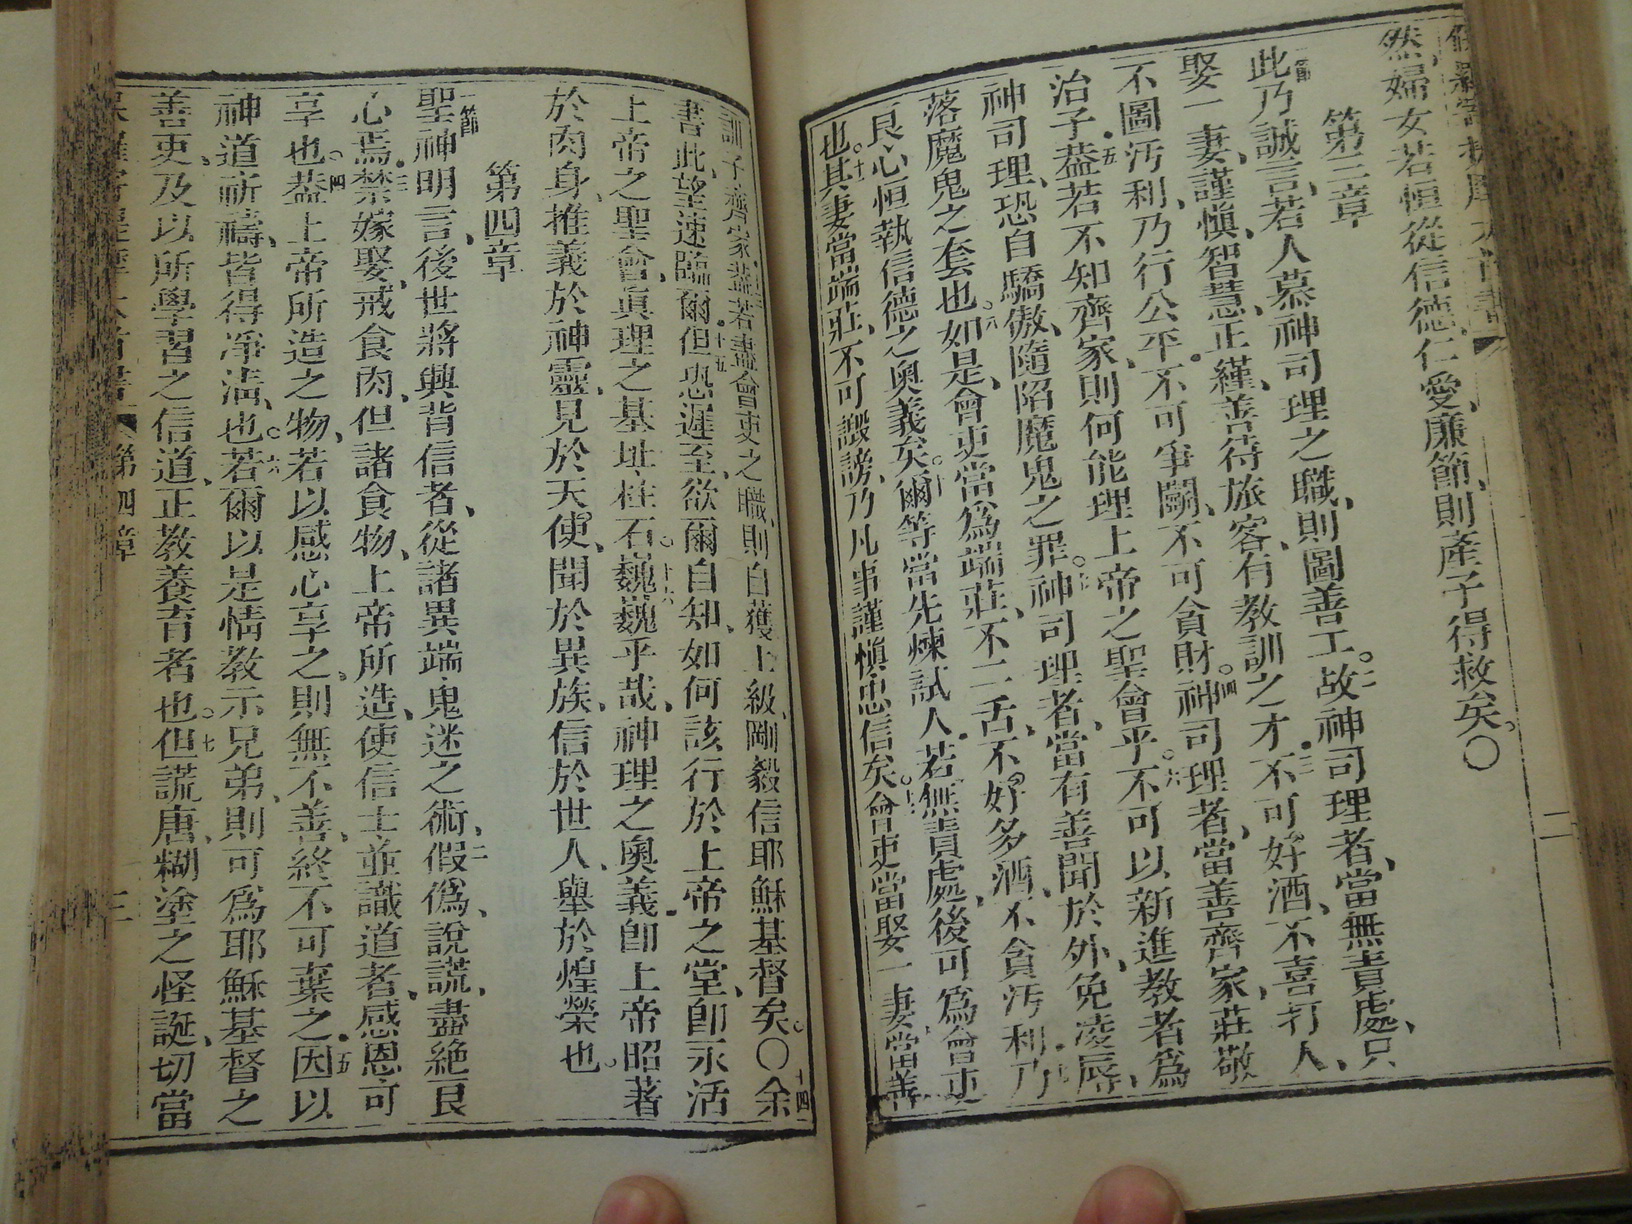 然婦女若恒從信德、仁愛、廉節、則產子得救矣。〇
第三章
一節此乃誠言、若人慕神司理之職、則圖善工。二故神司理者、當無責處、只
娶一妻、謹慎、智慧、正經、善待旅客、有教訓之才。三不可好酒、不喜打人、
不圖污利、乃行公平。不可爭鬭、不可貪財。四神司理者、當善齊家、莊敬
治子。五蓋若不知齊家、則何能理上帝之聖會乎。六不可以新進教者爲
神司理、恐自驕傲、隨陷魔鬼之罪。七神司理者、當有善聞於外、免凌辱、
落魔鬼之套也。八如是、會吏當爲端莊、不二舌、不好多酒、不貪污利、乃
良心恒執信德之奧義矣。爾等當先煉試人。若無責處、後可爲會吏
也。十一其妻當端莊、不可譭謗、乃凡事謹慎忠信矣。十二會吏當娶一妻、當善
訓子齊家、蓋若盡會吏之職、則自獲上級、剛毅信耶穌基督矣。〇十四余
書此、望速臨爾。十五但恐遲至、欲爾自知、如何該行於上帝之堂、即永活
上帝之聖會、眞理之基址柱石。十六巍巍乎哉、神理之奧義。即上帝昭著
於肉身、推義於神靈、見於天使、聞於異族、信於世人、舉於煌榮也。
第四章
一節聖神明言、後世將興背信者、從諸異端、鬼迷之術、二假僞、說謊、盡絶良
心焉。三禁嫁娶、戒食肉、但諸食物、上帝所造、使信士並識道者、感恩可
享也。四蓋上帝所造之物、若以感心享之、則無不善、終不可棄之。五因以
神道祈禱、皆得凈淸也。六若爾以是情教示兄弟、則可爲耶穌基督之
善吏、及以所學習之信道、正教養育者也。七但謊唐、糊塗之怪誕、切當
第四章
二
三